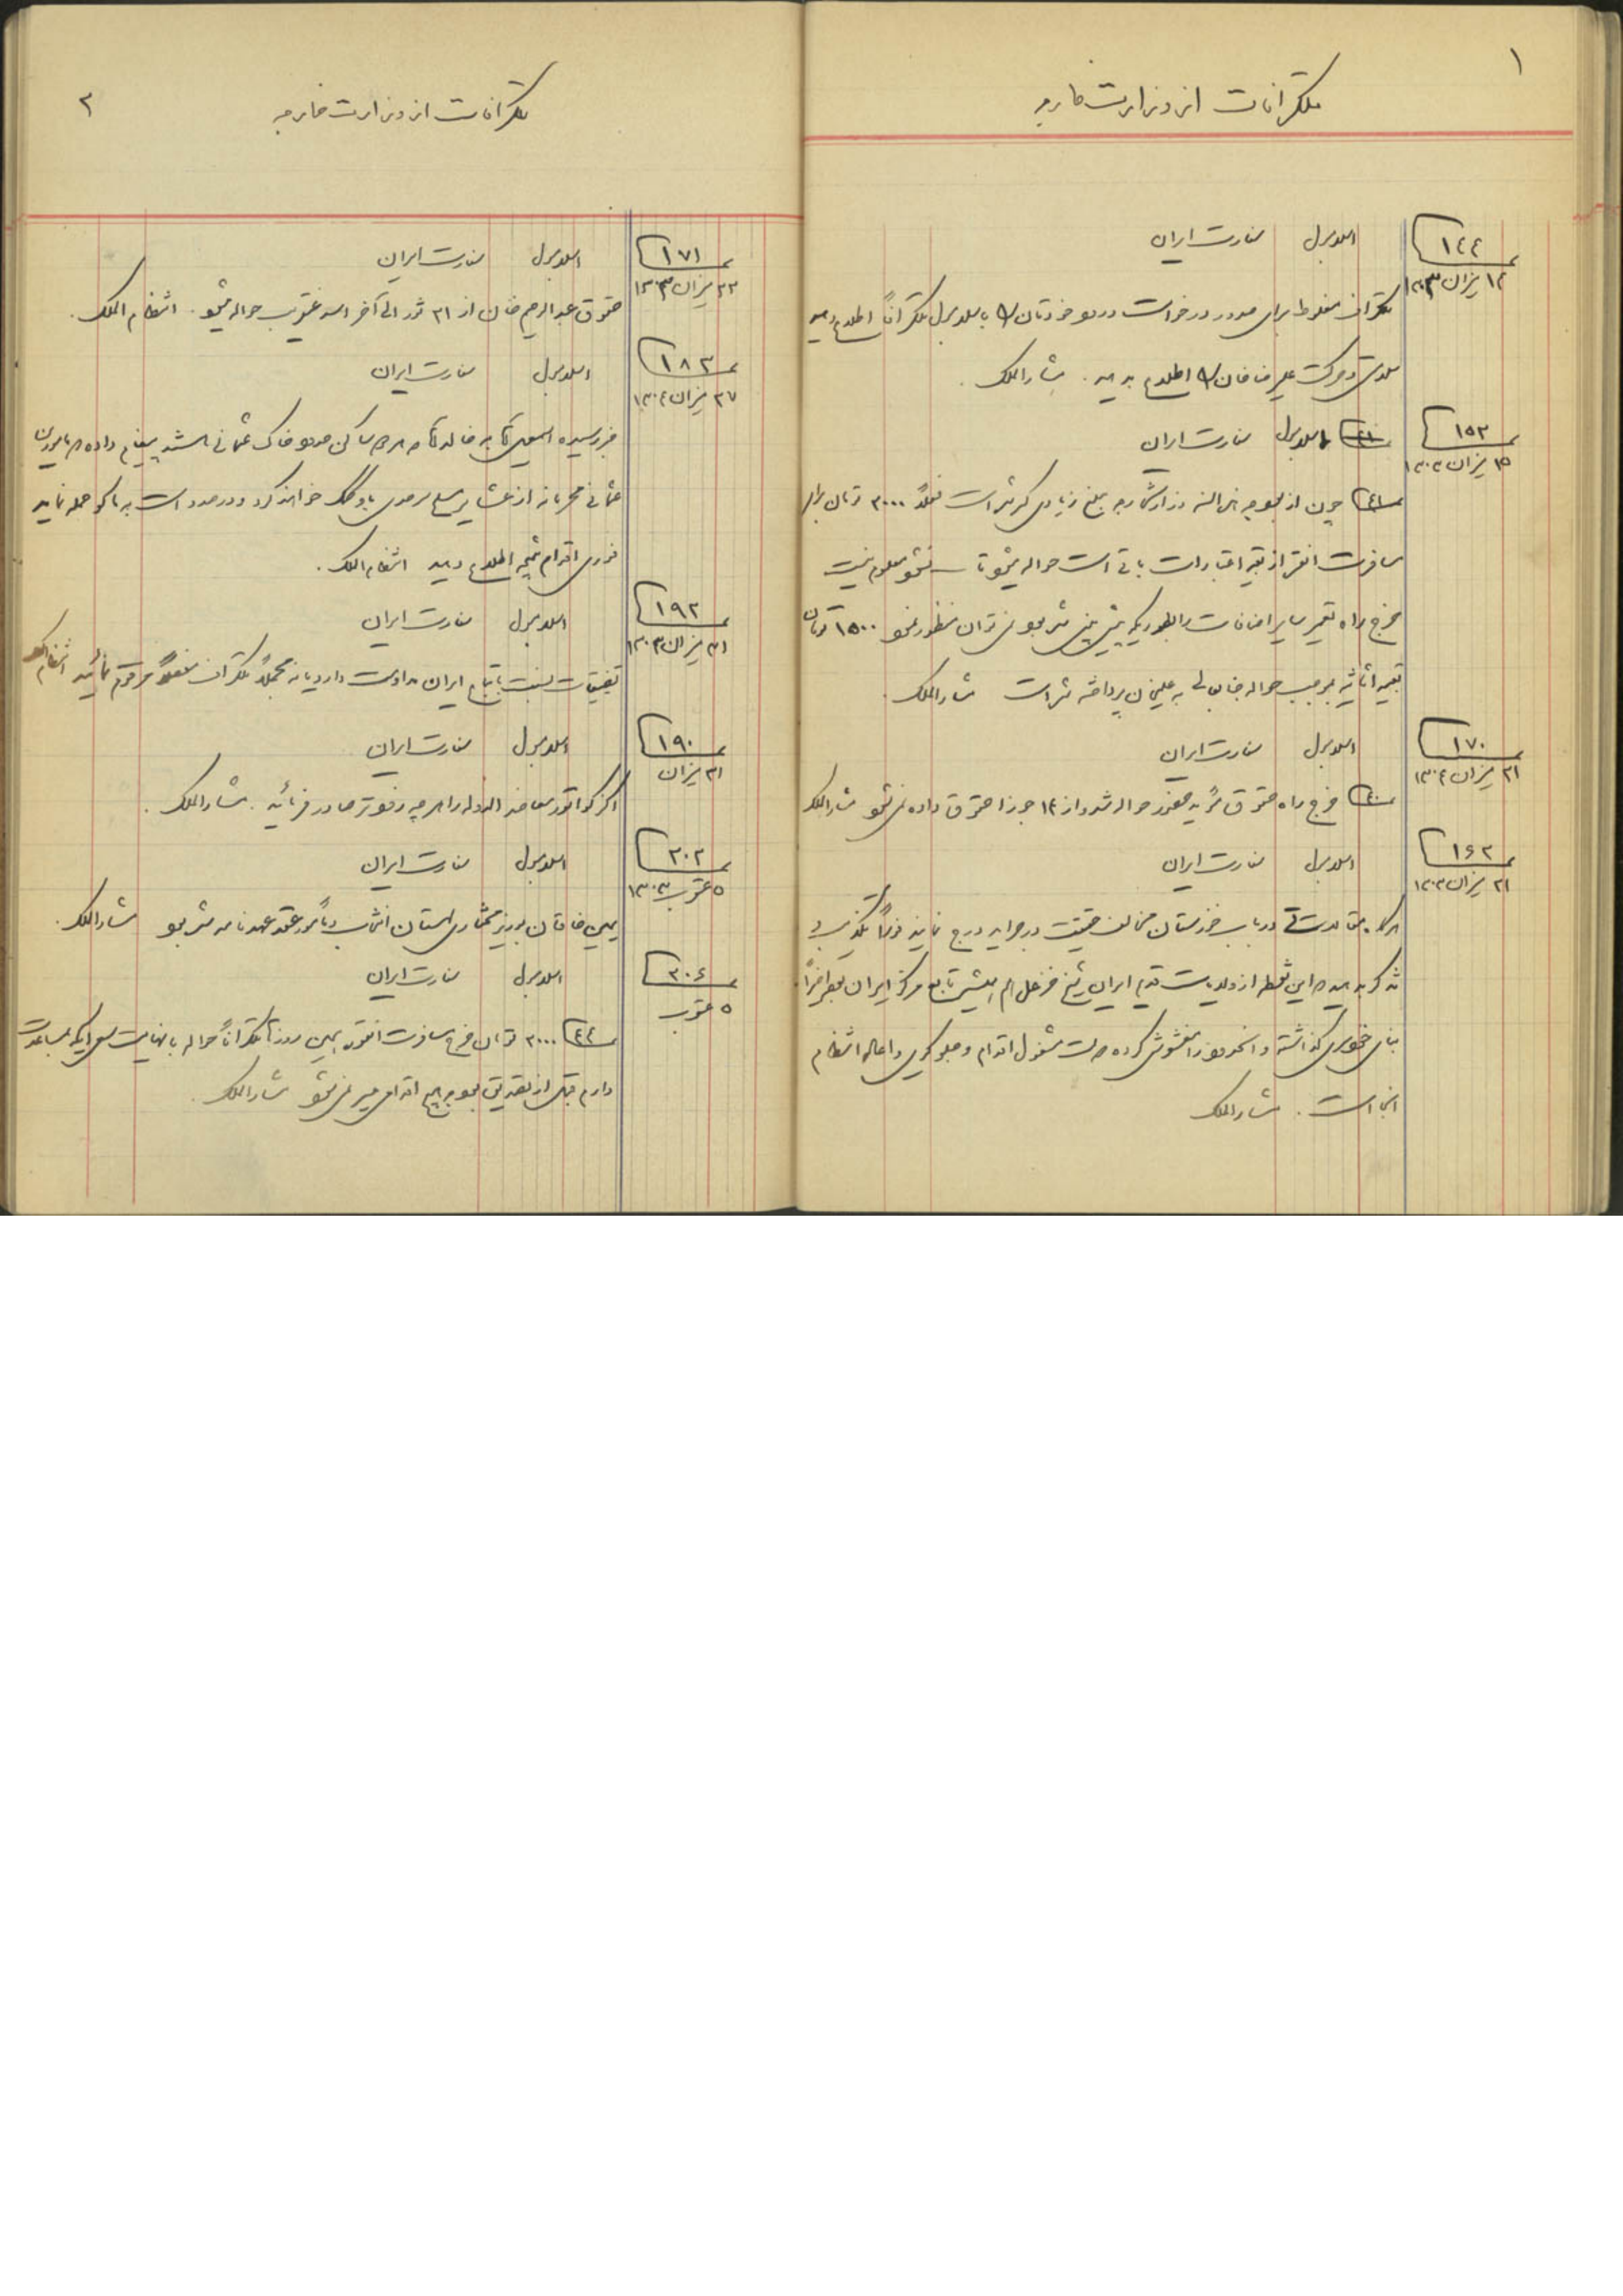 ۱
تلگرافات از وزارت خارجه
۱۴۴
۱۴ میزان ۱۳۰۳
اسلامبول سفارت ایران
تلگراف مغلوط برای صدور درخواست ورود خودتان را باسلامبول تلگرافاً اطلاع دهید
سلامتی و حرکت علیرضا خان را اطلاع بدهید. مشارالملک.
۱۵۲
۱۵ میزان ۱۳۰۳
اسلامبول سفارت ایران
۴۱ چون از بودجه هذالسنه وزارت خارجه مبلغ زیادی کسر شده است فعلاً ۳۰۰۰ تومان برای
مسافرت آنقره از بقیه اعتبارات باقی است حواله میشود تا نشود معلوم نیست
خرج راه تعمیر سایر اضافات را بطوریکه پیش بینی شده بود نمی توان منظور نمود ۱۵۰۰ تومان
بقیه اثاثیه بموجب حواله جنابعالی به پرداخته شده است مشارالملک.
۱۷۰
۲۱ میزان ۱۳۰۴
اسلامبول سفارت ایران
۴۰ خرج راه حقوق مؤید حضور حواله شد و از ۱۴ جوزا حقوق داده نمی شود مشارالملک
۱۶۲
۲۱ میزان ۱۳۰۳
اسلامبول سفارت ایران
هرگاه مقالاتی در باب خوزستان مخالف حقیقت در جراید درج نمایند فوراً تکذیب
تذکر بدهید که این خطه از ولایات قدیم ایران شیخ خزعل هم همیشه تابع مرکز ایران بوده اخیراً
بنای خودسری گذاشته و آنحدود را مغشوش کرده دولت مشغول اقدام و جلوگیری و اعاده انتظام
آنجا است. مشارالملک
۲
تلگرافات از وزارت خارجه
۱۷۱
۲۲ میزان ۱۳۰۳
اسلامبول سفارت ایران
حقوق عبدالرحیم خان از ۲۱ ثور الی آخر اسد عنقریب حواله میشود. انتظام الملک.
۱۸۳
۲۷ میزان ۱۳۰۴
اسلامبول سفارت ایران
خبر رسیده اسمعیل آقا به خالد آقا ساکن حدود خاک عثمانی پیغام داده که مامورین
عثمانی محرمانه از عشایر مسلح سرحدی باو کمک خواهند کرد و در صدد است به ماکو حمله نماید
فوری اقدام نتیجه اطلاع دهید انتظام الملک.
۱۹۲
۲۱ میزان ۱۳۰۳
اسلامبول سفارت ایران
تضییقات نسبت باتباع ایران مداومت دارد یا نه مجملاً تلگراف مفصلاً مرقوم نمائید انتظام الملک
۱۹۰
۲۱ میزان
اسلامبول سفارت ایران
اکزکواتور معاضد الدوله را هر چه زودتر صادر فرمائید. مشارالملک.
۲۰۲
۵ عقرب ۱۳۰۳
اسلامبول سفارت ایران
یمین خاقان بوزیر مختاری لهستان انتخاب و مأمور عقد عهدنامه شده بود مشارالملک.
۲۰۶
۵ عقرب
اسلامبول سفارت ایران
۴۴ ۳۰۰۰ تومان خرج مسافرت آنقره همین روز تلگرافاً حواله با نهایت میل که بمساعدت
دارم قبل از تصدیق بودجه هیچ اقدامی میسر نمی شود مشارالملک.